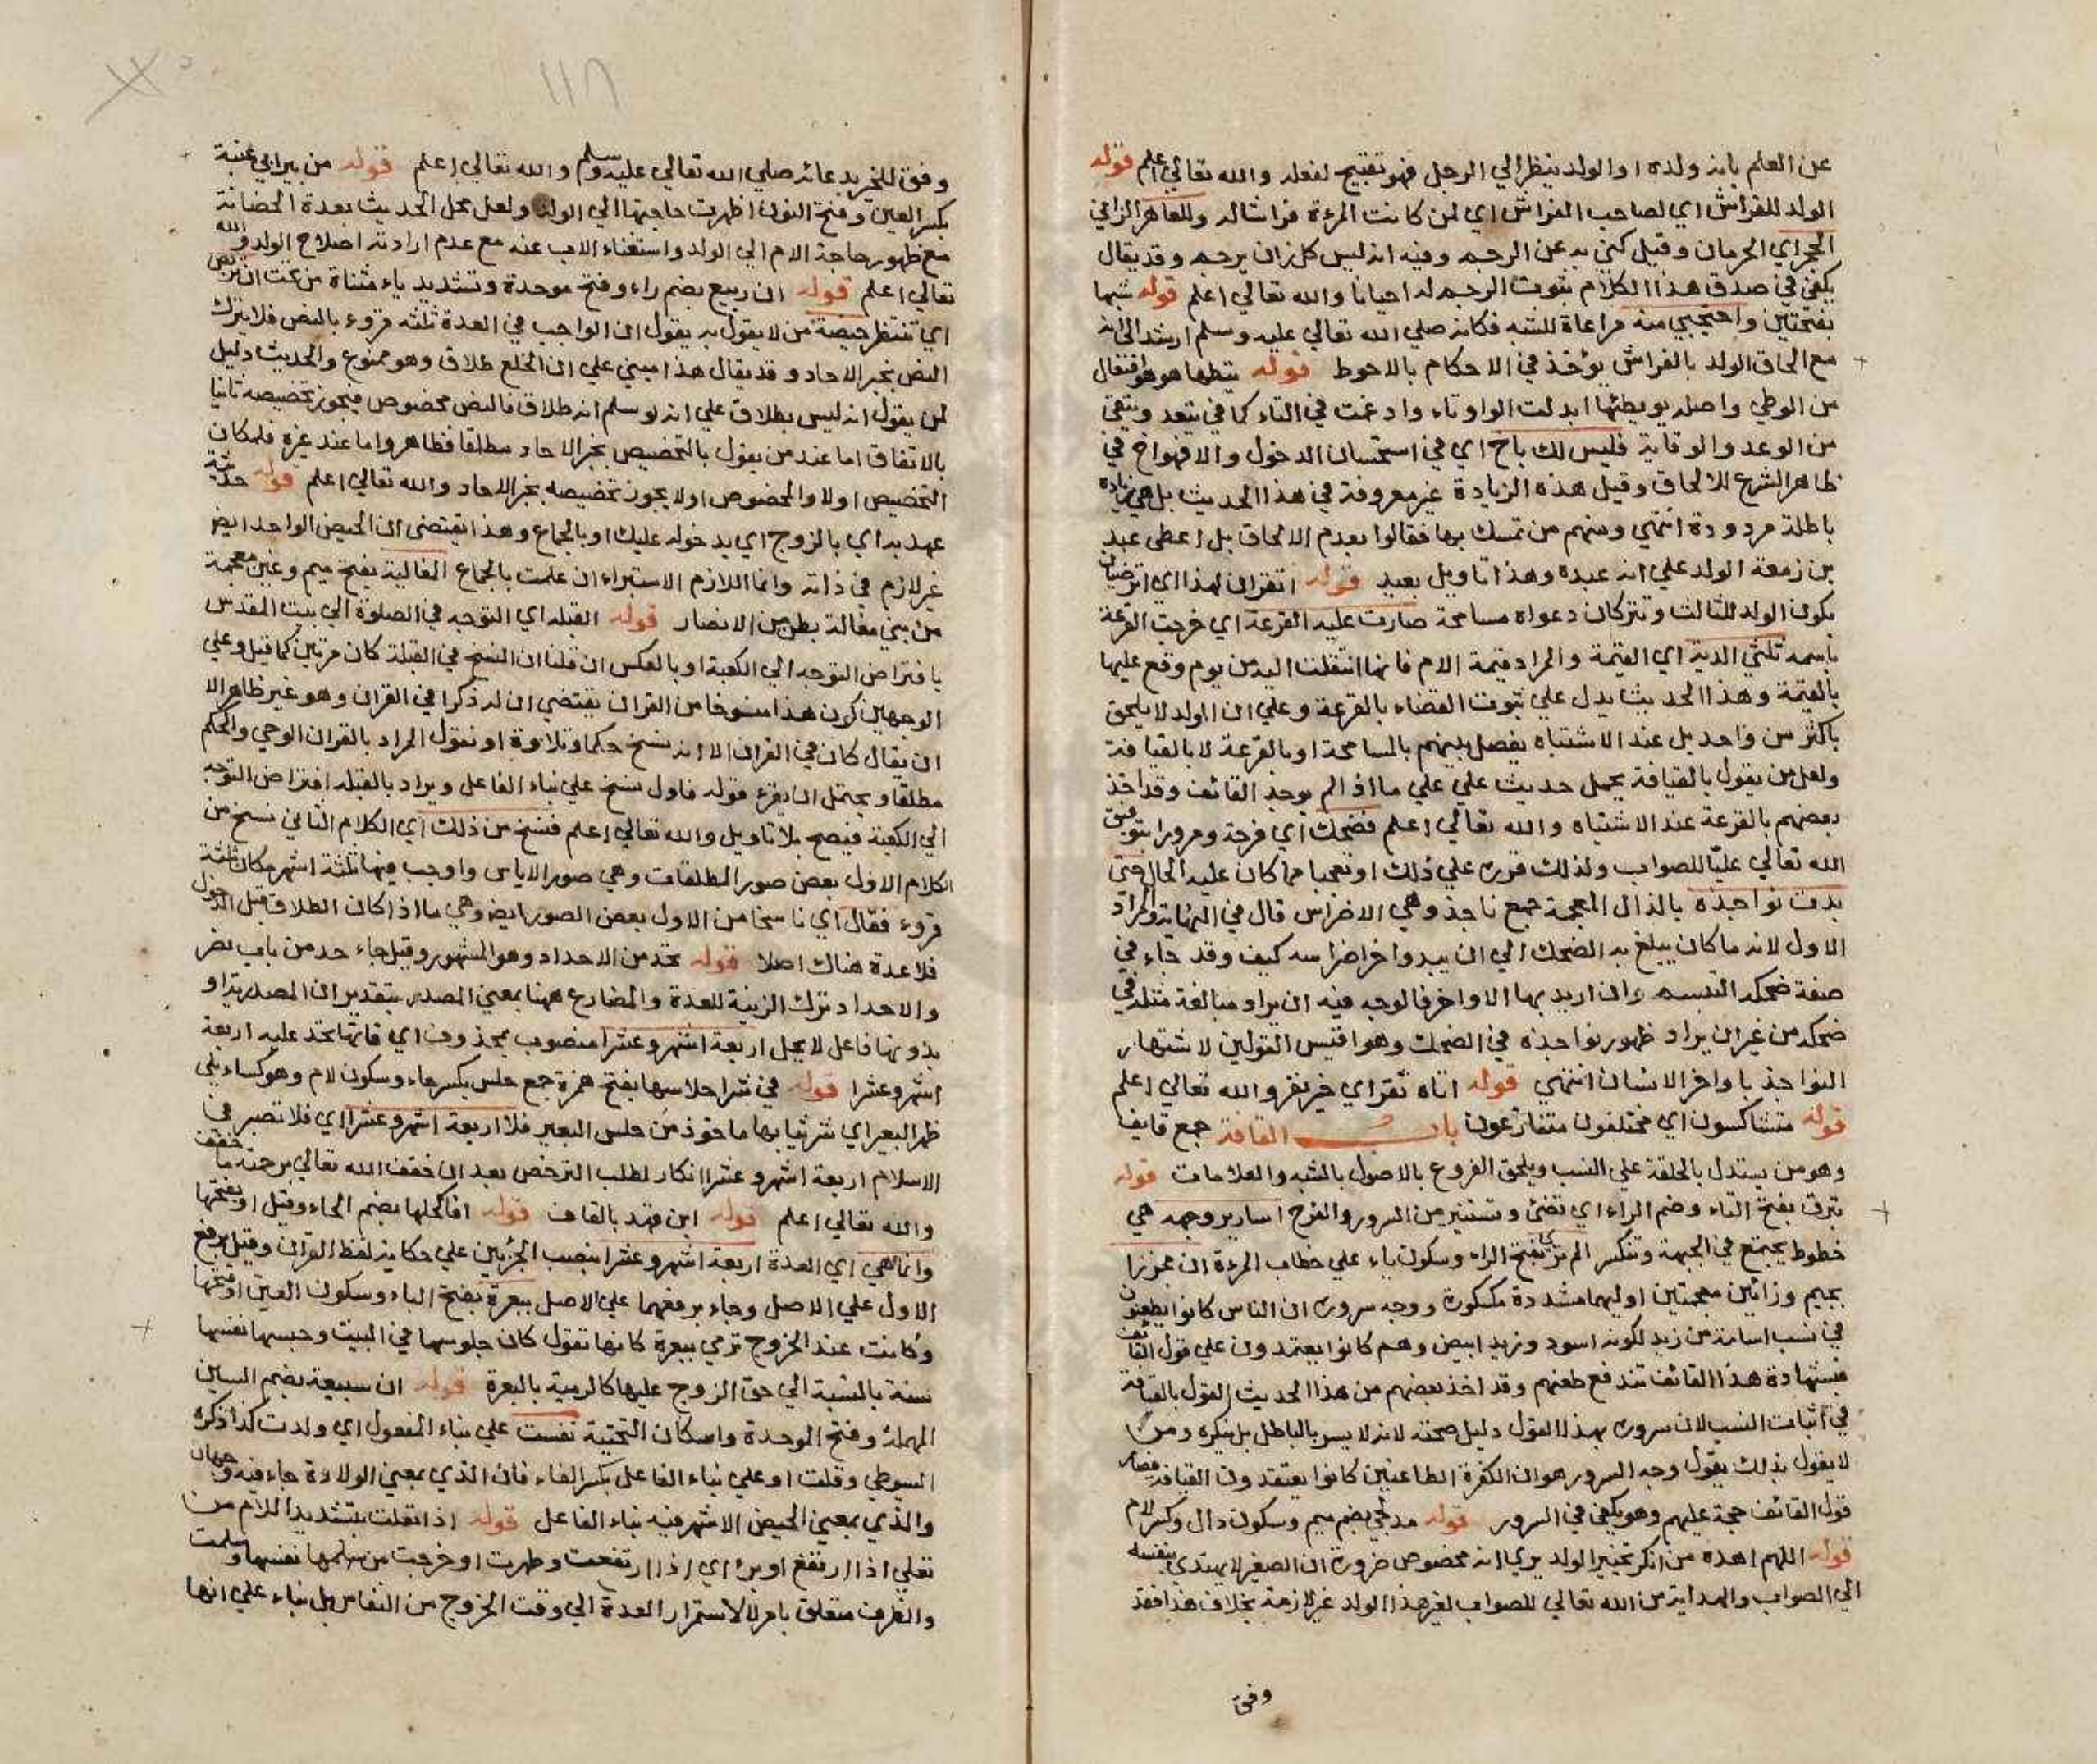 عن العلم بانه ولده او الولد ينظر الي الرجل فهو تقبيح لفعله والله تعالي اعلم قوله
الولد للفراش اي لصاحب الفراش اي لمن كانت المرءة فراشا له وللعاهر الزاني
الحجر اي الحرمان وقيل كني به عن الرجم وفيه انه ليس كل زان يرجم وقد يقال
يكفي في صدق هذا الكلام ثبوت الرجم له احيانا والله تعالي اعلم قوله شبها
بفتحتين واحتجبي منه مراعاة للشبه فكانه صلي الله تعالي عليه وسلم ارشد الي انه
مع الحاق الولد بالفراش يؤخذ في الاحكام بالاحوط قوله يتطها هو افتعال
من الوطي واصله يوتطئها ابدلت الواو تاء وادغمت في التاء كما في يتعد ويتقي
من الوعد والوقاية فليس لك باخ اي في استحسان الدخول والا فهو اخ في
ظاهر الشرع للالحاق وقيل هذه الزيادة غير معروفة في هذا الحديث بل هي زيادة
باطلة مردودة انتهي ومنهم من تمسك بها فقالوا بعدم الالحاق بل اعطي عبد
بن زمعة الولد علي انه عبده وهذا تاويل بعيد قوله اتقران لهذا اي اترضيان
بكون الولد للثالث وتتركان دعواه مسامحة صارت عليه القرعة اي خرجت القرعة
باسمه ثلثي الدية اي القيمة والمراد قيمة الام فانها انتقلت اليه من يوم وقع عليها
بالقيمة وهذا الحديث يدل علي ثبوت القضاء بالقرعة وعلي ان الولد لا يلحق
باكثر من واحد بل عند الاشتباه يفصل بينهم بالمسامحة او بالقرعة لا بالقيافة
ولعل من يقول بالقيافة يحمل حديث علي علي ما اذا لم يوجد القائف وقد اخذ
بعضهم بالقرعة عند الاشتباه والله تعالي اعلم فضحك اي فرحة وسرورا بتوفيق
الله تعالي عليّا للصواب ولذلك قرره علي ذلك او تعجبا مما كان عليه الحال حتي
بدت نواجذه بالذال المعجمة جمع ناجذ وهي الاضراس قال في النهاية والمراد
الاول لانه ما كان يبلغ به الضحك الي ان يبدو اخر اضراسه كيف وقد جاء في
صفة ضحكه التبسم وان اريد بها الاواخر فالوجه فيه ان يراد مبالغة مثله في
ضحكه من غير ان يراد ظهور نواجذه في الضحك وهو اقيس القولين لاشتهار
النواجذ باواخر الانسان انتهي قوله اتاه نفر اي خير نفر والله تعالي اعلم
قوله متشاكسون اي مختلفون متنازعون باب القافة جمع قايف
وهو من يستدل بالخلقة علي النسب ويلحق الفروع بالاصول بالشبه والعلامات قوله
تبرق بفتح التاء وضم الراء اي تضئ وتستنير من السرور والفرح اسارير وجهه هي
خطوط يجتمع في الجبهة وتنكسر الم تري بفتح الراء وسكون ياء علي خطاب المرءة ان مجززا
بجيم وزائين معجمتين اوليهما مشددة مكسورة ووجه سروره ان الناس كانوا يطعنون
في نسب اسامة من زيد لكونه اسود وزيد ابيض وهم كانوا يعتمدون علي قول القائف
فبشهادة هذا القائف تندفع طعنهم وقد اخذ بعضهم من هذا الحديث القول بالقيافة
في اثبات النسب لان سروره بهذا القول دليل صحته لانه لا يسر بالباطل بل ينكره ومن
لا يقول بذلك يقول وجه السرور هو ان الكفرة الطاعنين كانوا يعتقدون القيافة فصار
قول القائف حجة عليهم وهو يكفي في السرور قوله مدلجي بضم ميم وسكون دال وكسر لام
قوله اللهم اهده من انكر تخيير الولد يري انه مخصوص ضرورة ان الصغير لا يهتدي بنفسه
الي الصواب والهداية من الله تعالي للصواب لغير هذا الولد غير لازمة بخلاف هذا فقد
وفق
١١٨
وفق للخير بدعائه صلي الله تعالي عليه وسلم والله تعالي اعلم قوله من بير ابي عنبة
بكسر العين وفتح النون اظهرت حاجتها الي الولد ولعل محل الحديث بعدة الحضانة
مع ظهور حاجة الام الي الولد واستغناء الاب عنه مع عدم ارادته اصلاح الولد والله
تعالي اعلم قوله ان ربيع بضم راء وفتح موحدة وتشديد ياء مثناة من تحت ان تتربص
اي تنتظر حيضة من لا يقول به يقول ان الواجب في العدة ثلثه قروء بالنص فلا يترك
النص بخبر الاحاد وقد يقال هذا مبني علي ان الخلع طلاق وهو ممنوع والحديث دليل
لمن يقول انه ليس بطلاق علي انه لو سلم انه طلاق فالنص مخصوص فيجوز تخصيصه ثانيا
بالاتفاق اما عند من يقول بالتخصيص بخبر الاحاد مطلقا فظاهر واما عند غيره فلمكان
التخصيص اولا والمخصوص اولا يجوز تخصيصه بخبر الاحاد والله تعالي اعلم قوله حديثة
عهد به اي بالزوج اي بدخوله عليك او بالجماع وهذا يقتضي ان الحيض الواحد ايضا
غير لازم في ذاته وانما اللازم الاستبراء ان علمت بالجماع المغالية بفتح ميم وغين معجمة
من بني مغالة بطن من الانصار قوله القبلة اي التوجه في الصلوة الي بيت المقدس
بافتراض التوجه الي الكعبة او بالعكس ان قلنا ان النسخ في القبلة كان مرتين كما قيل وعلي
الوجهين كون هذا منسوخا من القران يقتضي ان له ذكرا في القران وهو غير ظاهر الا
ان يقال كان في القران الا انه نسخ حكما وتلاوة او نقول المراد بالقران الوحي والحكم
مطلقا ويحتمل ان يقرء قوله فاول نسخ علي بناء الفاعل ويراد بالقبلة افتراض التوجه
الي الكعبة فيصح بلا تاويل والله تعالي اعلم فنسخ من ذلك اي الكلام الثاني نسخ من
الكلام الاول بعض صور المطلقات وهي صور الاياس واوجب فيها ثلثة اشهر مكان ثلثة
قروء فقال اي ناسخا من الاول بعض الصور ايضا وهي ما اذا كان الطلاق قبل الدخول
فلا عدة هناك اصلا قوله تحد من الاحداد وهو المشهور وقيل جاء حد من باب نصر
والاحداد ترك الزينة للعدة والمضارع ههنا بمعني المصدر بتقدير ان المصدرية او
بدونها فاعل لا يحل اربعة اشهر وعشرا منصوب بمحذوف اي فانها تحد عليه اربعة
اشهر وعشرا قوله في شر احلاسها بفتح همزة جمع حلس بكسر حاء وسكون لام وهو كساء يلي
ظهر البعير اي شر ثيابها ماخوذ من حلس البعير فلا اربعة اشهر وعشرا اي فلا تصبر في
الاسلام اربعة اشهر وعشرا انكار لطلب الترخص بعد ان خفف الله تعالي برحمته ما خفف
والله تعالي اعلم قوله ابن فهد بالقاف قوله افاكحلها بضم الحاء وقيل او بفتحها
وانما هي اي العدة اربعة اشهر وعشرا بنصب الجزئين علي حكاية لفظ القران وقيل برفع
الاول علي الاصل وجاء برفعهما علي الاصل ببعرة بفتح الباء وسكون العين او فتحها
وكانت عند الخروج ترمي ببعرة كانها تقول كان جلوسها في البيت وحبسها نفسها
سنة بالنسبة الي حق الزوج عليها كالرمية بالبعرة قوله ان سبيعة بضم السين
المهملة وفتح الموحدة واسكان التحتية نفست علي بناء المفعول اي ولدت كذا ذكره
السيوطي وقلت او علي بناء الفاعل بكسر الفاء فان الذي بمعني الولادة جاء فيه وجهان
والذي بمعني الحيض الاشهر فيه بناء الفاعل قوله اذا تعلت بتشديد اللام من
تعلي اذا ارتفع او برئ اي اذا ارتفعت وطهرت او خرجت من نفاسها وسلمت
والظرف متعلق بامر لا لاستمرار العدة الي وقت الخروج من النفاس بل بناء علي انها